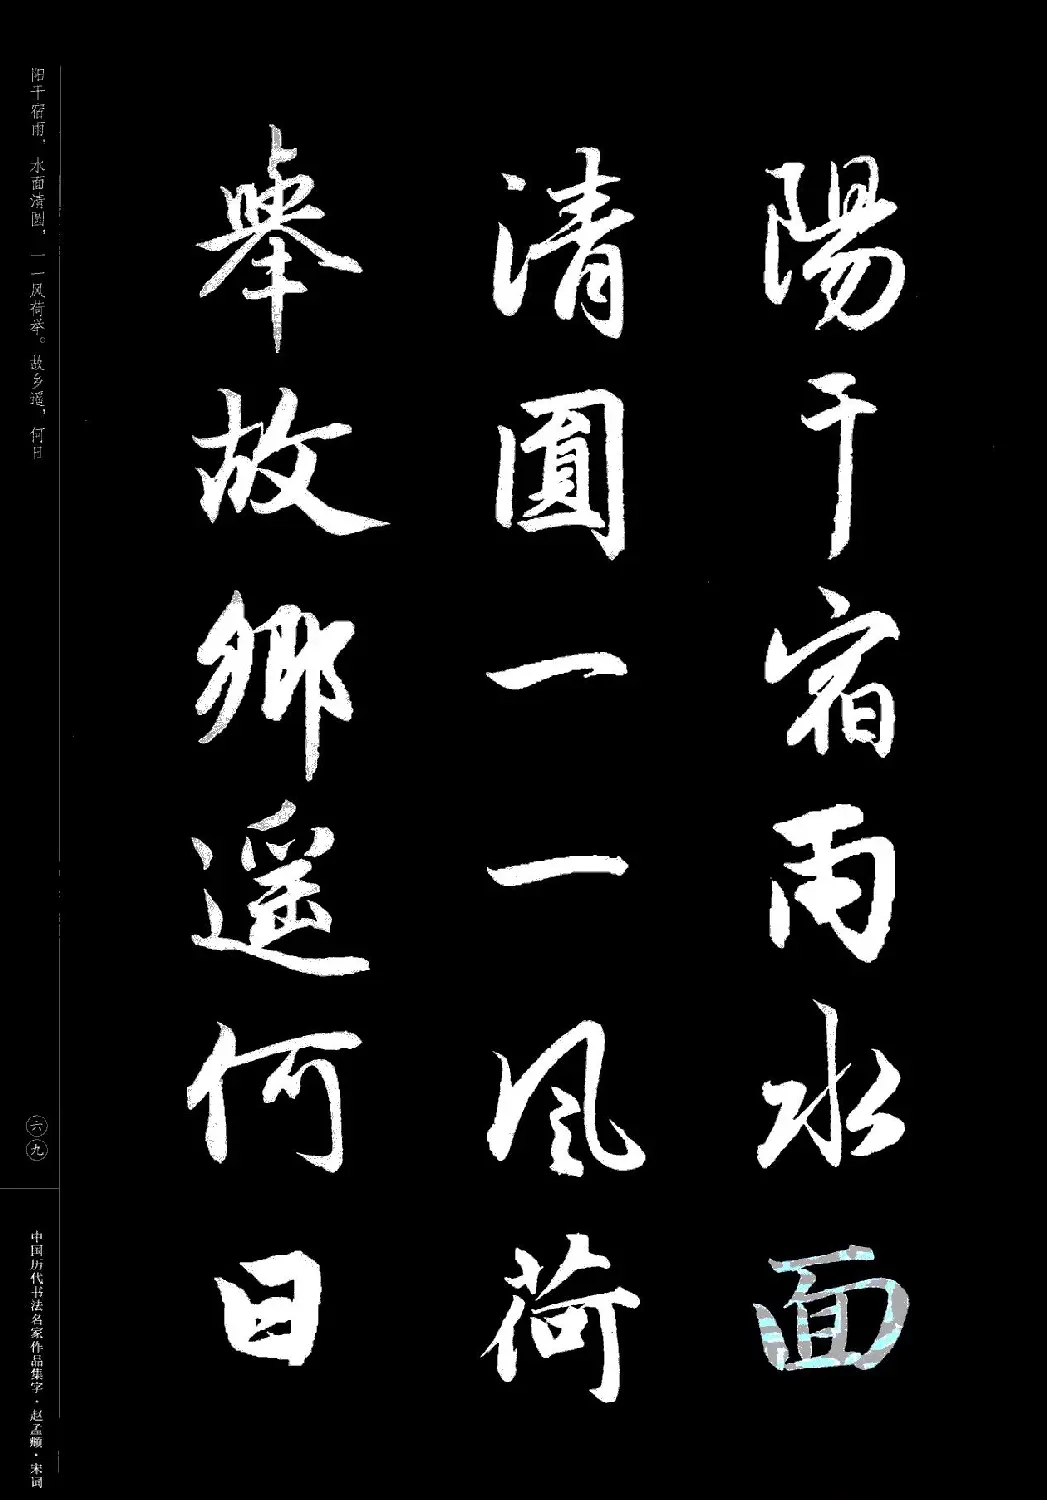 陽干宿雨水面
清圓一一风荷
舉故鄉遥何日
阳干宿雨，水面清圆，一一风荷举。故乡遥，何日
六九
中国历代书法名家作品集字·赵孟頫·宋词